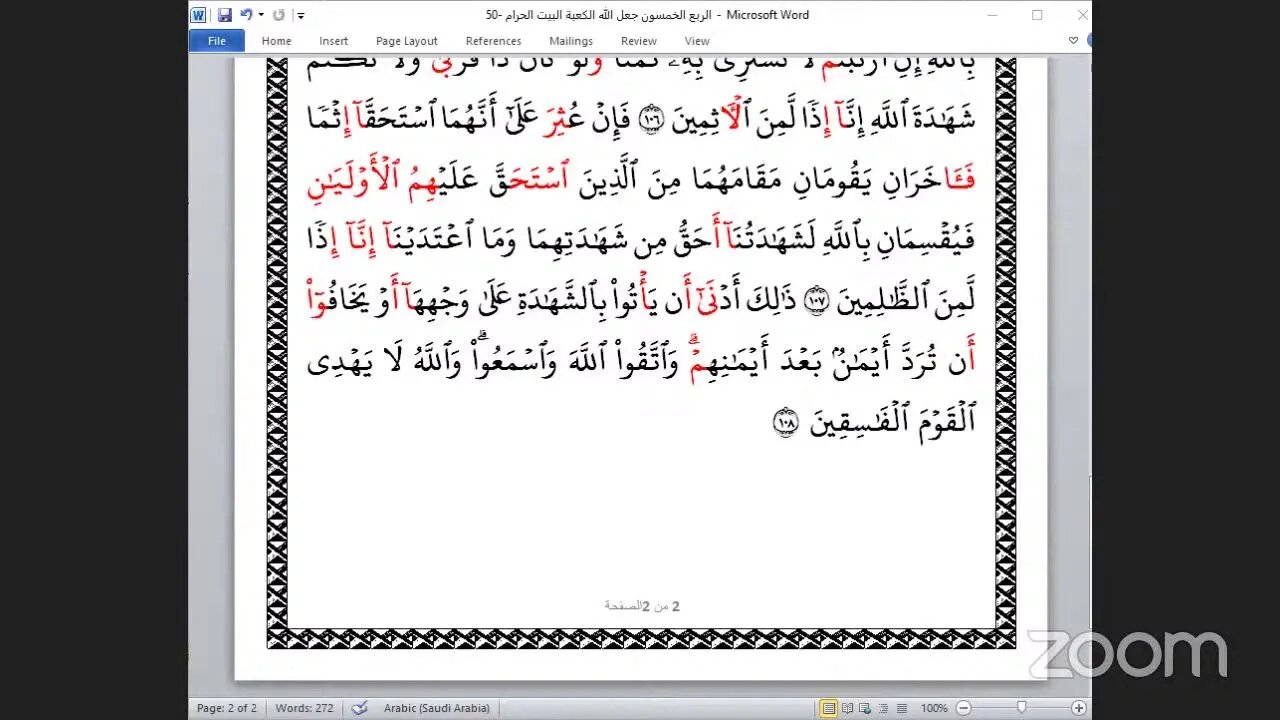 50- الربع الخمسون جعل الله الكعبة البيت الحرام - Microsoft Word
File Home Insert Page Layout References Mailings Review View
بِٱللَّهِ إِنِ ٱرۡتَبۡتُمۡ لَا نَشۡتَرِى بِهِۦ ثَمَنٗا وَلَوۡ كَانَ ذَا قُرۡبَىٰ وَلَا نَكۡتُمُ
شَهَٰدَةَ ٱللَّهِ إِنَّآ إِذٗا لَّمِنَ ٱلۡأٓثِمِينَ ١٠٦ فَإِنۡ عُثِرَ عَلَىٰٓ أَنَّهُمَا ٱسۡتَحَقَّآ إِثۡمٗا
فَـَٔاخَرَانِ يَقُومَانِ مَقَامَهُمَا مِنَ ٱلَّذِينَ ٱسۡتَحَقَّ عَلَيۡهِمُ ٱلۡأَوۡلَيَٰنِ
فَيُقۡسِمَانِ بِٱللَّهِ لَشَهَٰدَتُنَآ أَحَقُّ مِن شَهَٰدَتِهِمَا وَمَا ٱعۡتَدَيۡنَآ إِنَّآ إِذٗا
لَّمِنَ ٱلظَّٰلِمِينَ ١٠٧ ذَٰلِكَ أَدۡنَىٰٓ أَن يَأۡتُواْ بِٱلشَّهَٰدَةِ عَلَىٰ وَجۡهِهَآ أَوۡ يَخَافُوٓاْ
أَن تُرَدَّ أَيۡمَٰنُۢ بَعۡدَ أَيۡمَٰنِهِمۡۗ وَٱتَّقُواْ ٱللَّهَ وَٱسۡمَعُواْۗ وَٱللَّهُ لَا يَهۡدِى
ٱلۡقَوۡمَ ٱلۡفَٰسِقِينَ ١٠٨
2 من 2الصفحة
zoom
Page: 2 of 2 Words: 272 Arabic (Saudi Arabia) 100%